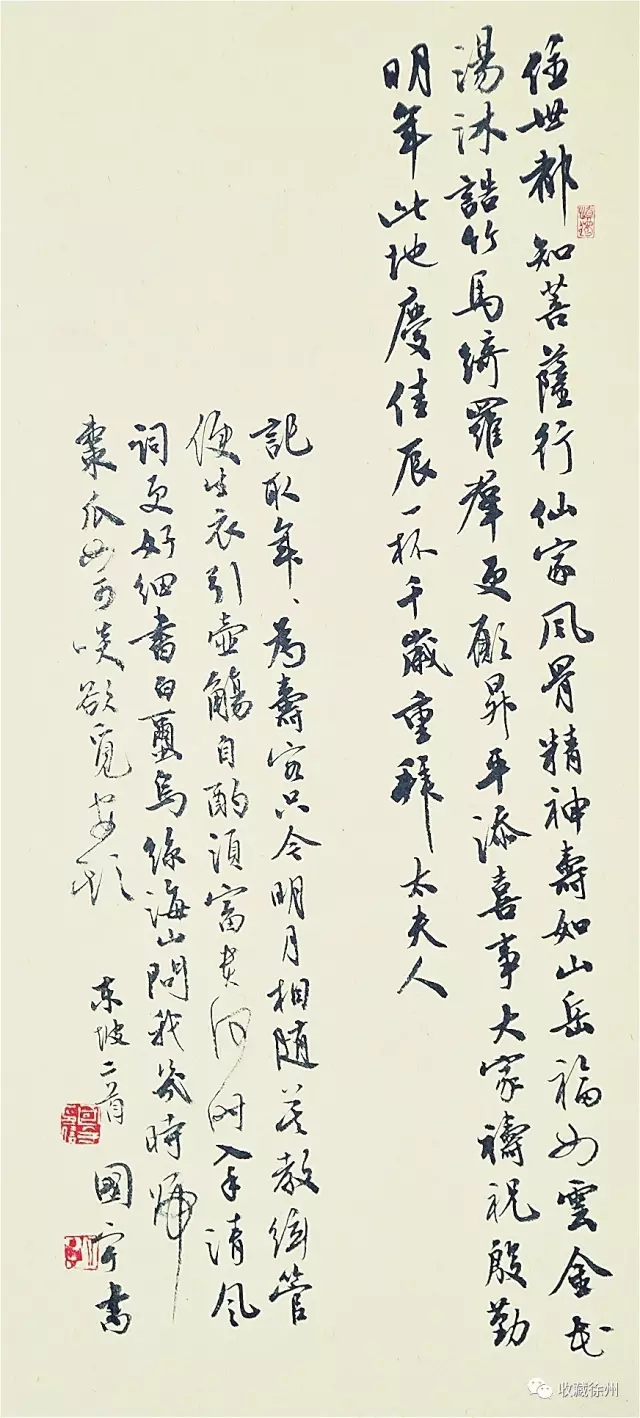 住世都知菩薩行仙家風骨精神壽如山岳福如雲金花
湯沐誥竹馬綺羅羣更願昇平添喜事大家禱祝殷勤
明年此地慶佳辰一杯千歲重拜太夫人
記取年、為壽客只令明月相随莫教絃管
便生衣引壺觴自酌須富貴何時入手清風
詞更好細書白繭烏絲海山問我幾時歸
棗瓜如可啖欲覓安期
东坡二首
國書
收藏徐州